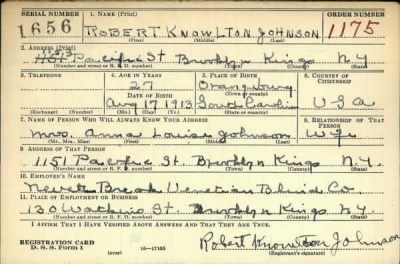 SERIAL NUMBER 1. NAME (Print) ORDER NUMBER
1656 ROBERT KNOWLTON JOHNSON 1175
(First) (Middle) (Last)
2. ADDRESS (Print)
Pacific St Brooklyn Kings NY
(Number and street or R. F. D. number) (Town) (County) (State)
3. TELEPHONE 4. AGE IN YEARS 5. PLACE OF BIRTH 6. COUNTRY OF CITIZENSHIP
27 Orangeburg
DATE OF BIRTH (Town or county)
Aug 17 1913 South Carolina USA
(Exchange) (Number) (Mo.) (Day) (Yr.) (State or country)
7. NAME OF PERSON WHO WILL ALWAYS KNOW YOUR ADDRESS 8. RELATIONSHIP OF THAT PERSON
Mrs. Anna Louise Johnson Wife
(Mr., Mrs., Miss) (First) (Middle) (Last)
9. ADDRESS OF THAT PERSON
1151 Pacific St. Brooklyn Kings N.Y.
(Number and street or R. F. D. number) (Town) (County) (State)
10. EMPLOYER'S NAME
Break Venetian Blind Co
11. PLACE OF EMPLOYMENT OR BUSINESS
130 Watkins St. Brooklyn Kings NY.
(Number and street or R. F. D. number) (Town) (County) (State)
I AFFIRM THAT I HAVE VERIFIED ABOVE ANSWERS AND THAT THEY ARE TRUE.
REGISTRATION CARD
D. S. S. Form 1 (over) 16—17105
Robert Knowlton Johnson
(Registrant's signature)